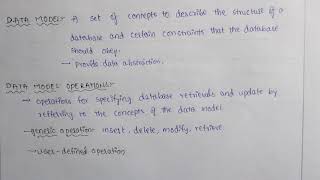 DATA MODEL:- A set of concepts to describe the structure of a
database and certain constraints that the database
should obey.
→ Provide data abstraction.
DATA MODEL OPERATIONS:-
→ operations for specifying database retrievals and update by
reffering to the concepts of the data model.
→ generic operation- insert, delete, modify, retrieve.
→ user-defined operation